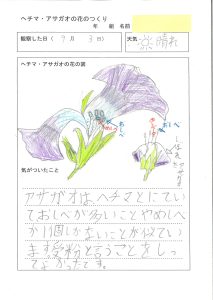 ヘチマ・アサガオの花のつくり
年 組 名前
観察した日( 9月 3日)
天気 晴れ
ヘチマ・アサガオの花の図
めしべ
おしべ
気がついたこと
アサガオは、ヘチマとにてい
ておしべが多いことやめしべ
が1個しかないことが似てい
ます。受粉というこうとをしっ
てよかったです。